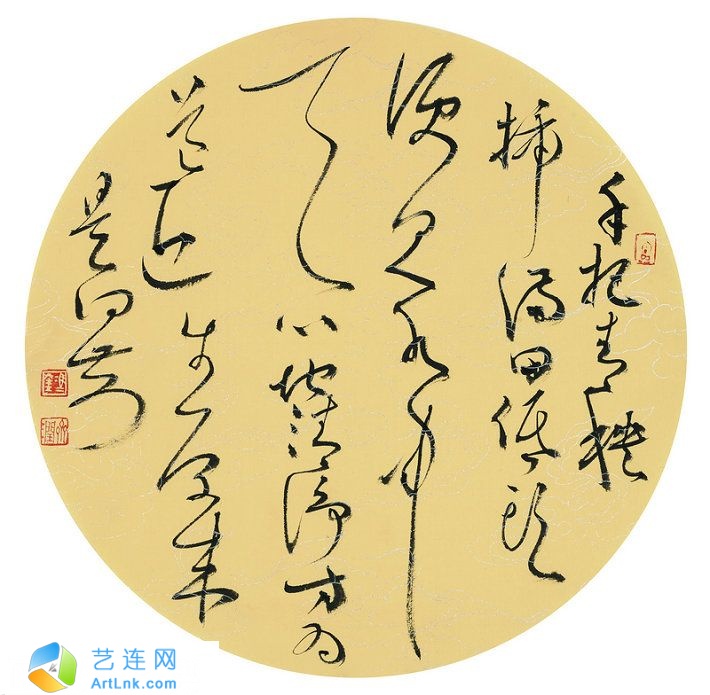 手把青秧
插满田低头
便见水中
天心地清净方为
道退步原来
是向前
艺连网
ArtLnk.com